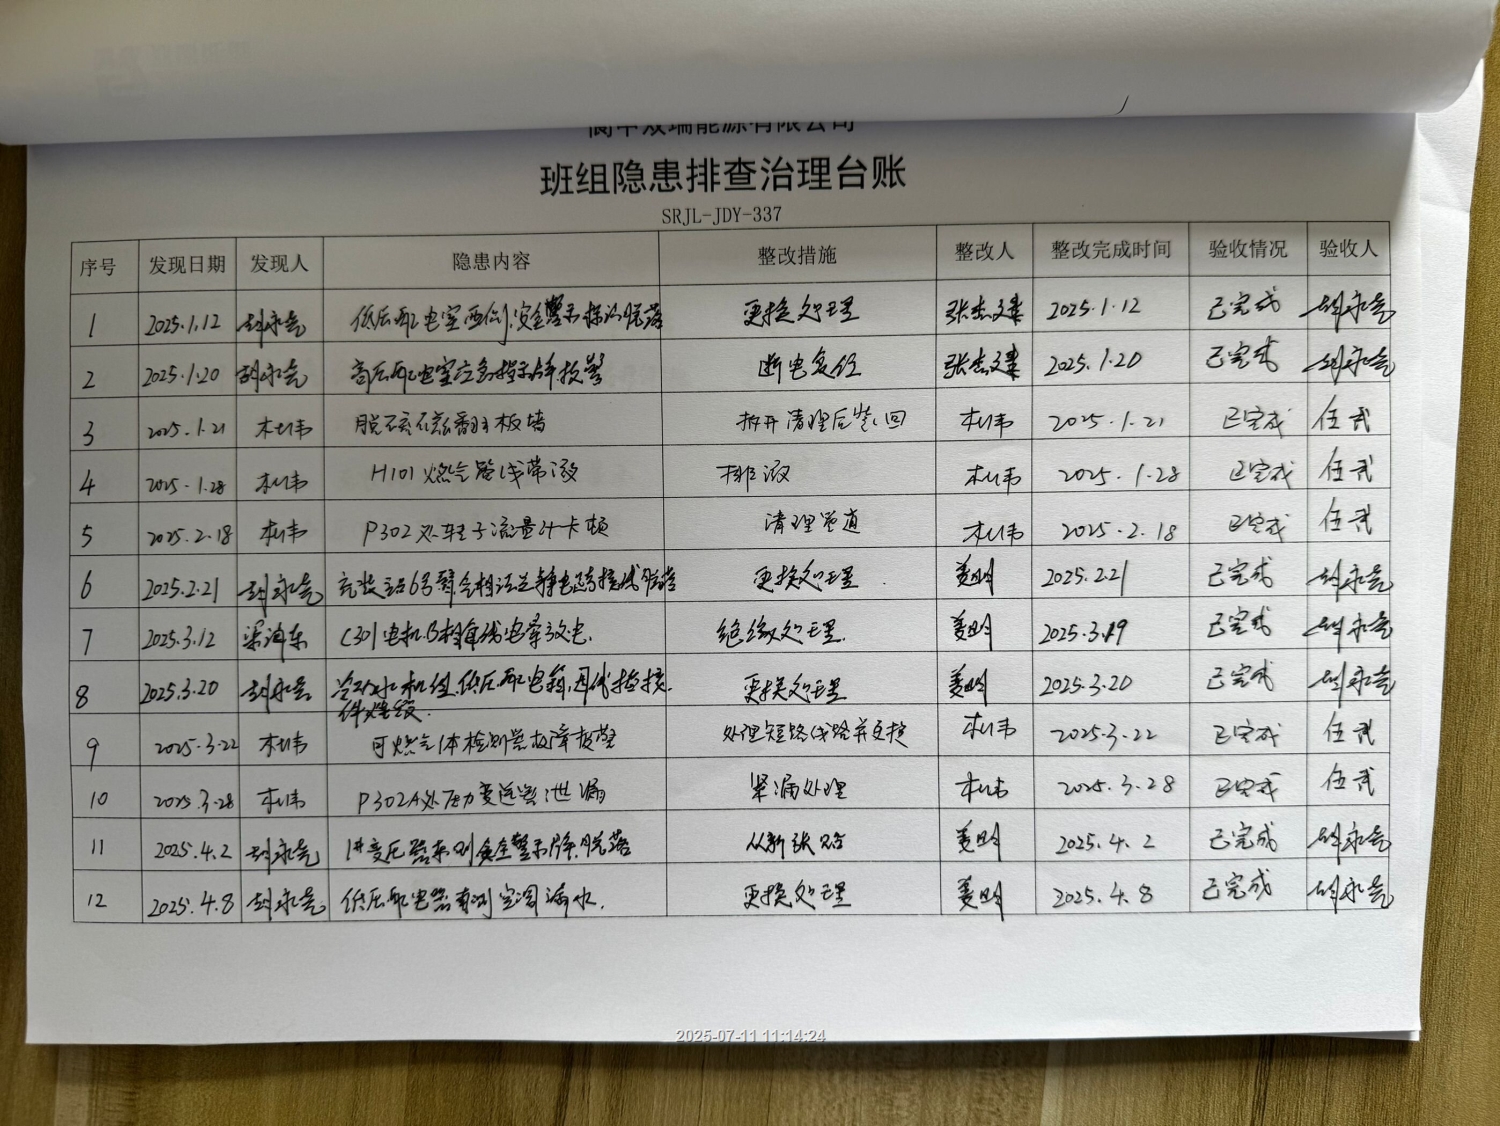 阆中双瑞能源有限公司
班组隐患排查治理台账
SRJL-JDY-337
序号 发现日期 发现人 隐患内容 整改措施 整改人 整改完成时间 验收情况 验收人
1 2025.1.12 胡永亮 低压配电室西侧,安全警示标识脱落 更换处理 张杰建 2025.1.12 已完成 胡永亮
2 2025.1.20 胡永亮 高压配电室应急指示牌报警 断电复位 张杰建 2025.1.20 已完成 胡永亮
3 2025.1.21 杜伟 磁翻板堵 拆开清理后装回 杜伟 2025.1.21 已完成 伍武
4 2025.1.28 杜伟 H101燃气管线带液 排液 杜伟 2025.1.28 已完成 伍武
5 2025.2.18 杜伟 P302处转子流量计卡顿 清理管道 杜伟 2025.2.18 已完成 伍武
6 2025.2.21 胡永亮 充装站6号臂气相法兰静电跨接线脱落 更换处理 姜明 2025.2.21 已完成 胡永亮
7 2025.3.12 梁海东 C301电机B相接线电晕放电. 绝缘处理. 姜明 2025.3.19 已完成 胡永亮
8 2025.3.20 胡永亮 冷水机组,低压配电箱, 更换处理 姜明 2025.3.20 已完成 胡永亮
9 2025.3.22 杜伟 可燃气体检测器故障报警 处理短路线路并更换 杜伟 2025.3.22 已完成 伍武
10 2025.3.28 杜伟 P302A处压力变送器泄漏 紧漏处理 杜伟 2025.3.28 已完成 伍武
11 2025.4.2 胡永亮 1#变压器东侧安全警示牌脱落 从新张贴 姜明 2025.4.2 已完成 胡永亮
12 2025.4.8 胡永亮 低压配电器南侧空调漏水. 更换处理 姜明 2025.4.8 已完成 胡永亮
2025-07-11 11:14:24